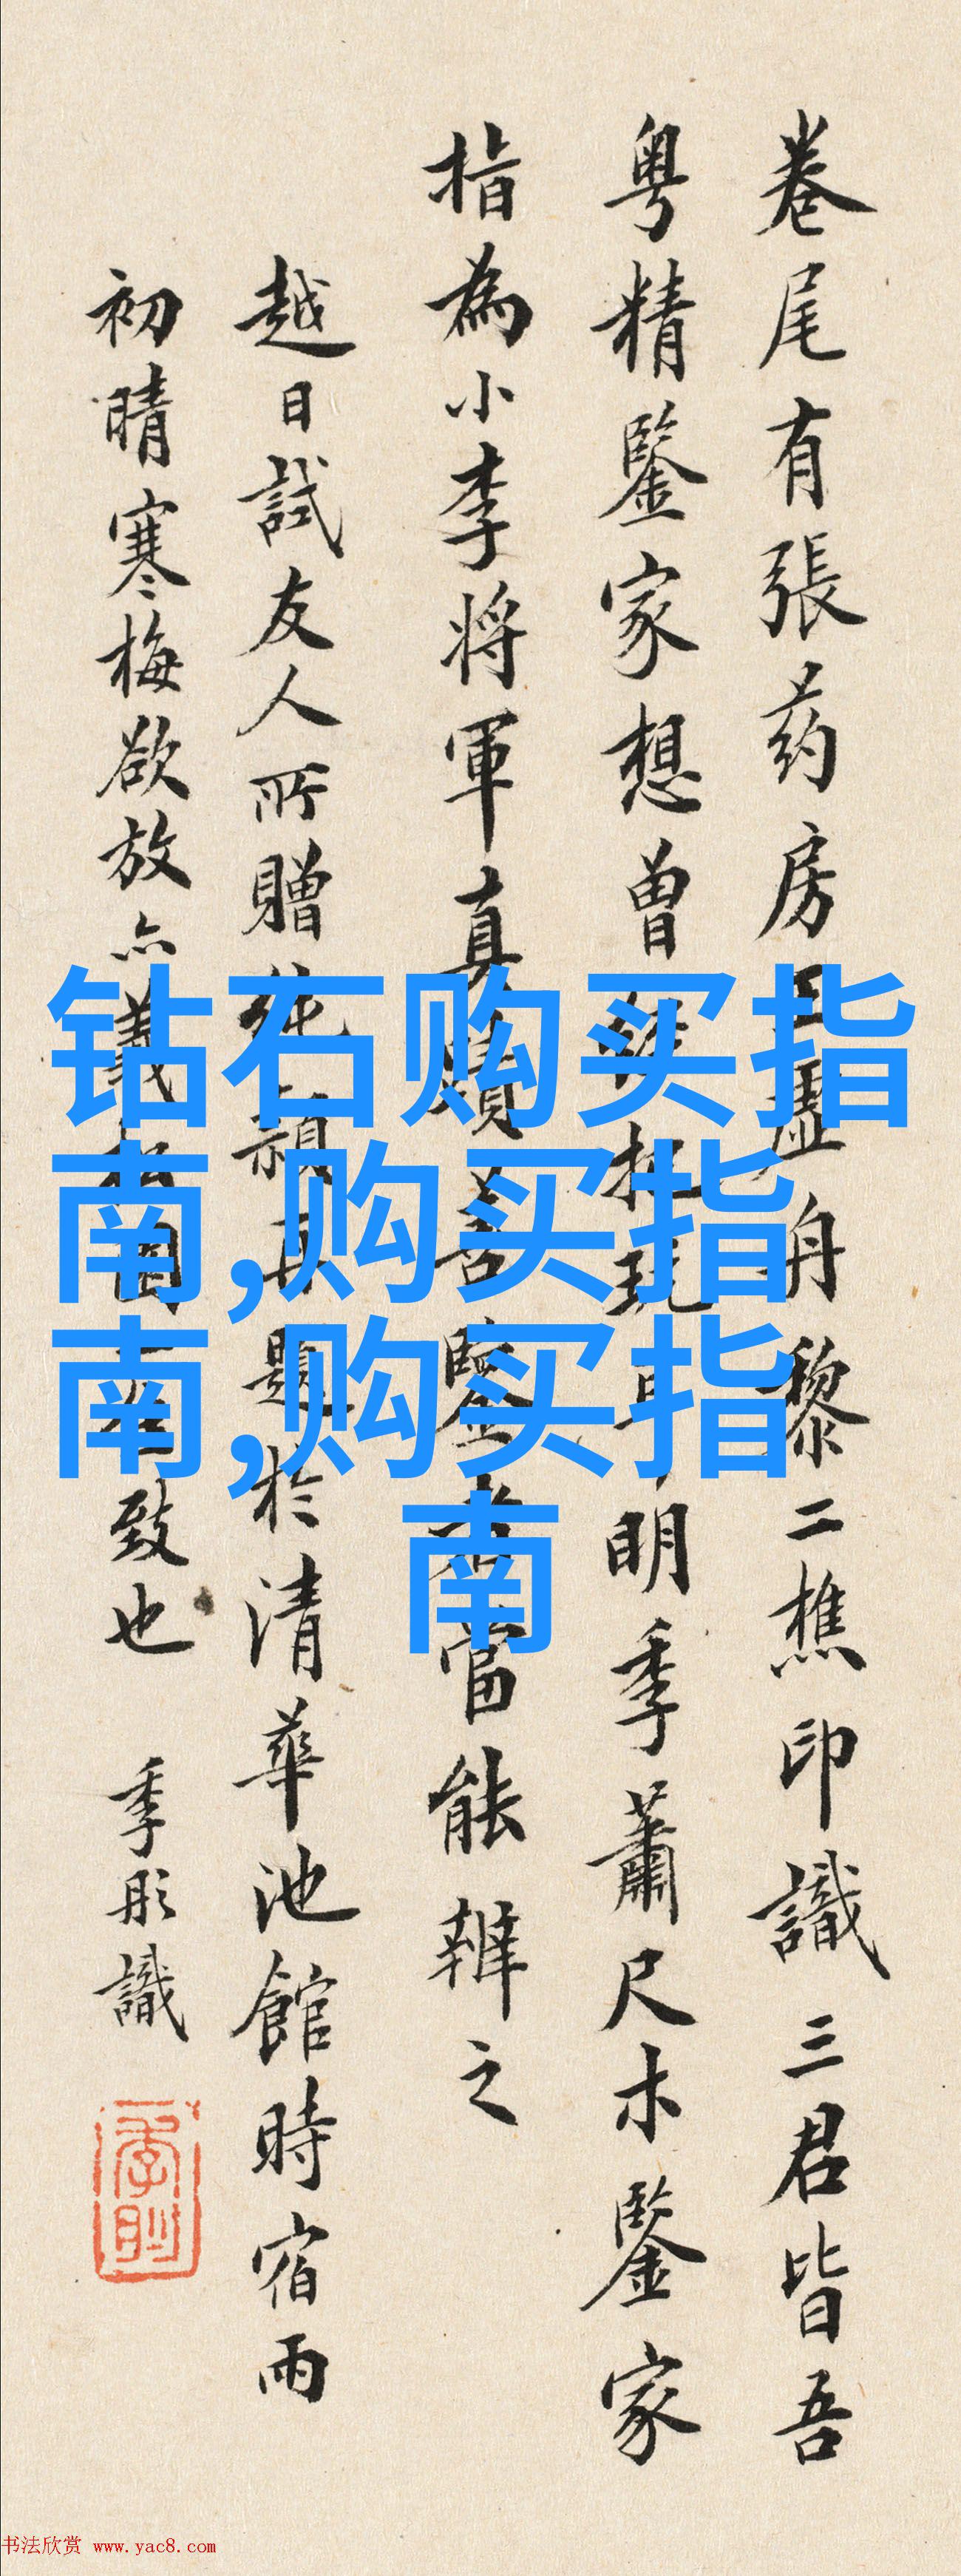 卷尾有張药房王虛舟黎二樵印識三君皆吾
粤精鑒家想曾明季蕭尺木鑒家
指為小李将軍真蹟善鑒者當能辨之
越日試友人所贈純頴再題於清華池館時宿雨
初晴寒梅欲放亦致也 季彤識
钻石购买指
南,购买指
南,购买指
南
书法欣赏 www.yac8.com